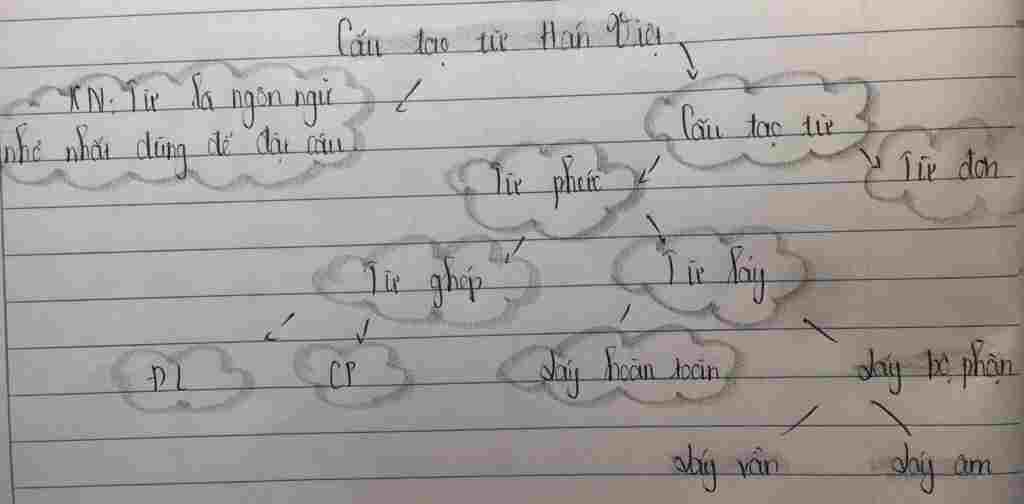 Cấu tạo từ Hán Việt
KN: Từ là ngôn ngữ
nhỏ nhất dùng để đặt câu
Cấu tạo từ
Từ đơn
Từ phức
Từ ghép
Từ láy
ĐL
CP
Láy hoàn toàn
Láy bộ phận
Láy vần
Láy âm